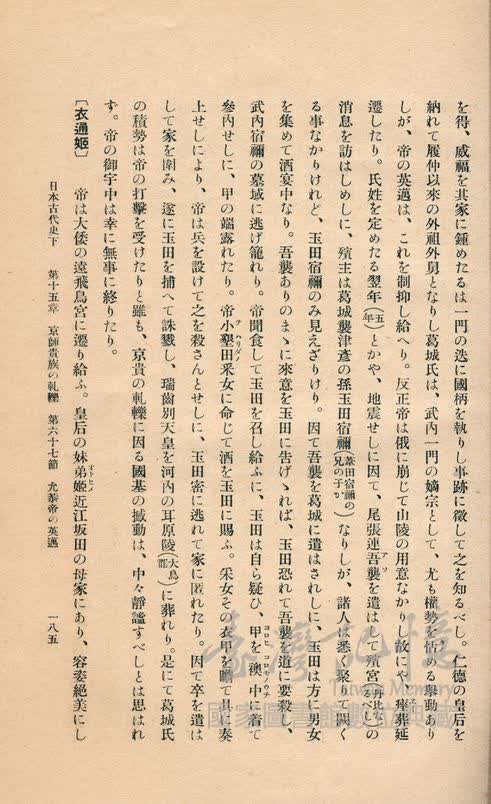 を得、威福を其家に鍾めたるは一門の迭に國柄を執りし事跡に徴して之を知るべし。仁德の皇后を
納れて履仲以來の外祖外舅となりし葛城氏は、武内一門の嫡宗として、尤も權勢を怙める擧動あり
しが、帝の英邁は、これを制抑し給へり。反正帝は俄に崩じて山陵の用意なかりし故にや、瘞葬延
遷したり。氏姓を定めたる翌年(五年)とかや、地震せしに因て、尾張連吾襲を遣はして殯宮(丹比なるべし)の
消息を訪はしめしに、殯主は葛城襲津彥の孫玉田宿禰(葦田宿禰の兄の子か)なりしが、諸人は悉く聚りて闕く
る事なかりけれど、玉田宿禰のみ見えざりけり。因て吾襲を葛城に遣はされしに、玉田は方に男女
を集めて酒宴中なり。吾襲ありのまゝに來意を玉田に告げゝれば、玉田恐れて吾襲を道に要殺し、
武内宿禰の墓域に逃げ籠れり。帝聞食して玉田を召し給ふに、玉田は自ら疑ひ、甲を襖中に着て
參内せしに、甲の端露れたり。帝小墾田釆女に命じて酒を玉田に賜ふ。釆女その衣甲を瞻て具に奏
上せしにより、帝は兵を設けて之を殺さんとせしに、玉田密に逃れて家に匿れたり。因て卒を遣は
して家を圍み、遂に玉田を捕へて誅戮し、瑞齒別天皇を河内の耳原陵(大鳥郡)に葬れり。是にて葛城氏
の積勢は帝の打擊を受けたりと雖も、京貴の軋轢に因る國基の撼動は、中々靜謐すべしとは思はれ
ず。帝の御宇中は幸に無事に終りたり。
〔衣通姬〕 帝は大倭の遠飛鳥宮に遷り給ふ。皇后の妹弟姬近江坂田の母家にあり、容姿絶美にし
日本古代史下 第十五章 京師貴族の軋轢 第六十七節 允恭帝の英邁 一八五
臺灣記憶
Taiwan Memory
國家圖書館